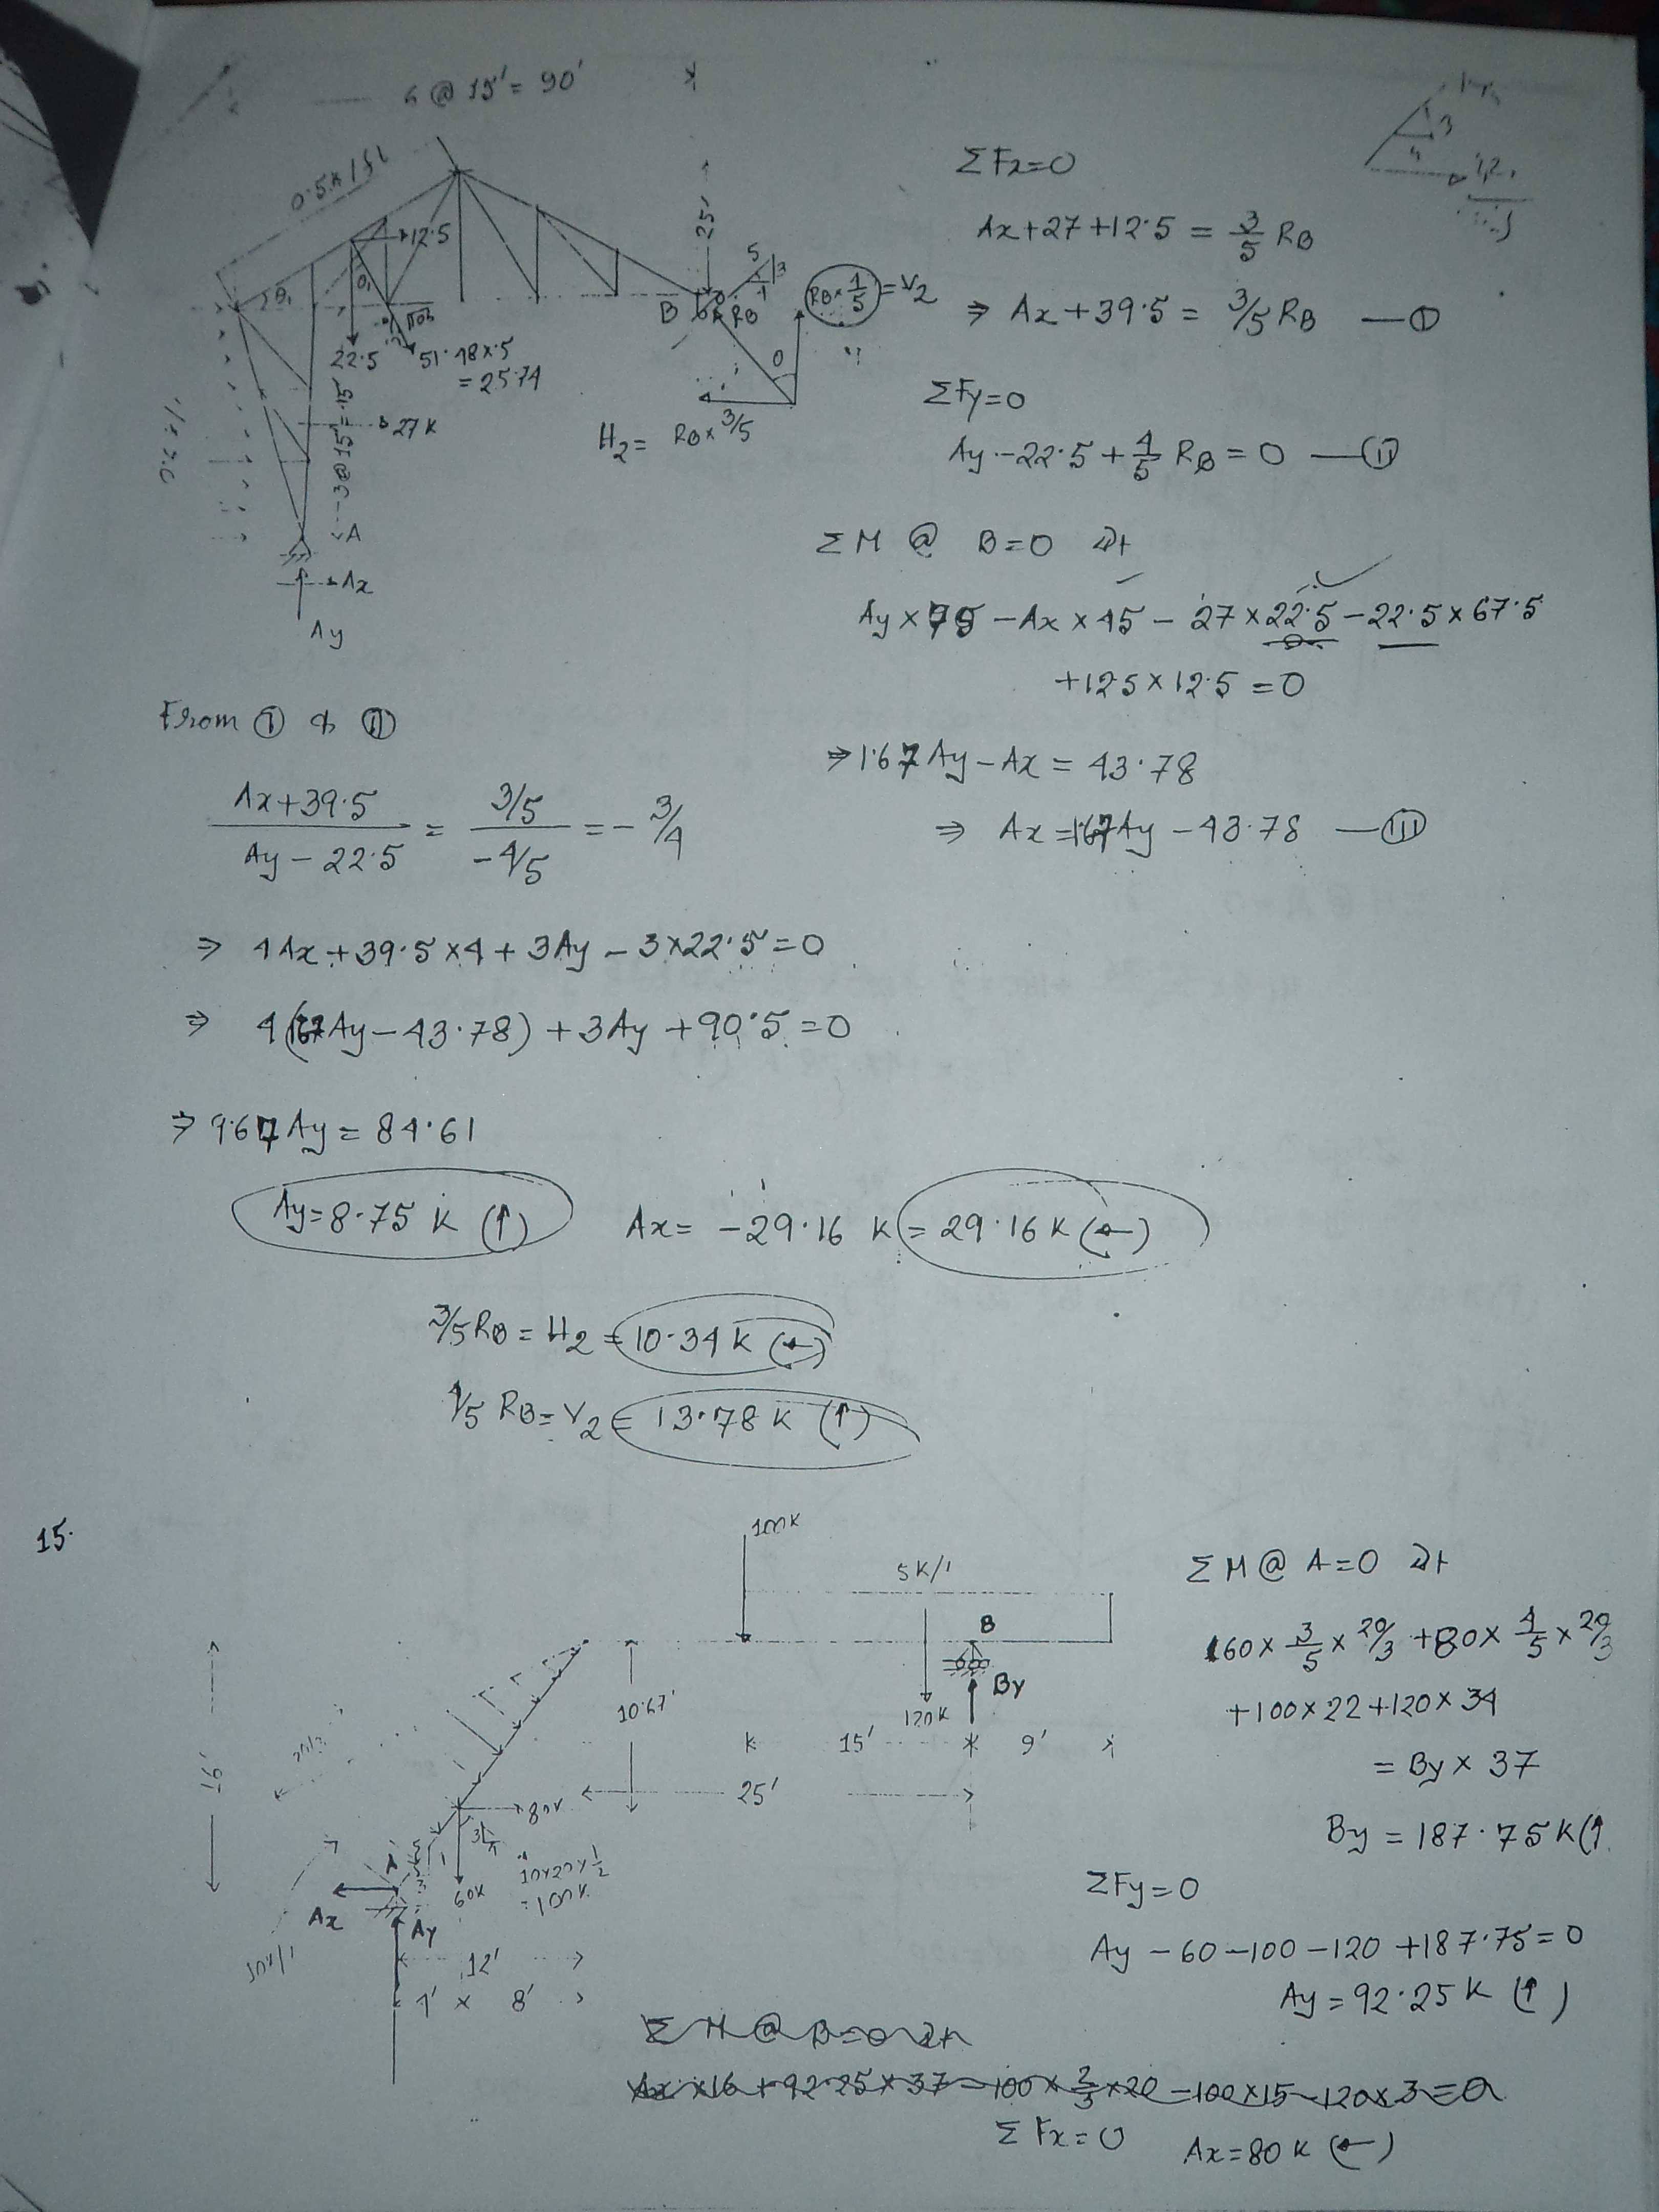 6 @ 15' = 90'
0.5 k/ft
12.5
θ1
θ1
22.5
51.48×.5
= 25.74
25'
5
3
4
B
RB
RB × 4/5 = V2
θ
H2 = RB × 3/5
27 K
3@15'=45'
A
Ax
Ay
3
4
ΣFx=0
Ax+27+12.5 = 3/5 RB
⇒ Ax+39.5 = 3/5 RB — (I)
ΣFy=0
Ay - 22.5 + 4/5 RB = 0 — (II)
ΣM @ B=0
Ay × 75 - Ax × 45 - 27 × 22.5 - 22.5 × 67.5
+12.5 × 12.5 = 0
⇒ 1.67 Ay - Ax = 43.78
⇒ Ax = 1.67 Ay - 43.78 — (III)
From (I) & (II)
(Ax+39.5)/(Ay-22.5) = (3/5)/(-4/5) = -3/4
⇒ 4Ax + 39.5×4 + 3Ay - 3×22.5 = 0
⇒ 4(1.67Ay - 43.78) + 3Ay + 90.5 = 0
⇒ 9.67 Ay = 84.61
Ay = 8.75 K (↑) Ax = -29.16 K = 29.16 K (←)
3/5 RB = H2 = 10.34 K (←)
4/5 RB = V2 = 13.78 K (↑)
15.
100K
5K/'
B
By
120K
10.67'
15'
9'
25'
16'
80K
60K
10×20×1/2
= 100K
A
Ax
Ay
12'
4' × 8'
ΣM @ A=0
160 × 3/5 × 20/3 + 80 × 4/5 × 20/3
+100×22+120×34
= By × 37
By = 187.75 K (↑
ΣFy=0
Ay - 60 - 100 - 120 + 187.75 = 0
Ay = 92.25 K (↑)
ΣM @ B=0
Ax ×16 + 92.25×37 - 100 × 2/3 × 20 - 100×15 - 120×3 = 0
ΣFx=0 Ax=80 K (←)